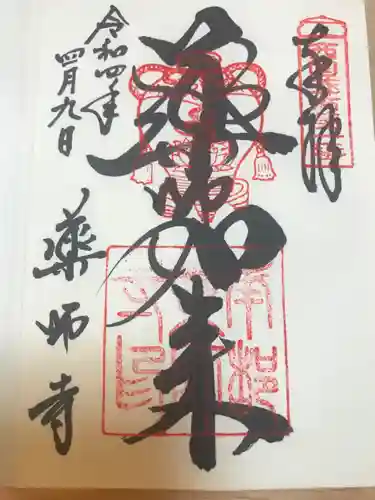 奉拝
薬師如来
令和四年
四月九日
薬師寺